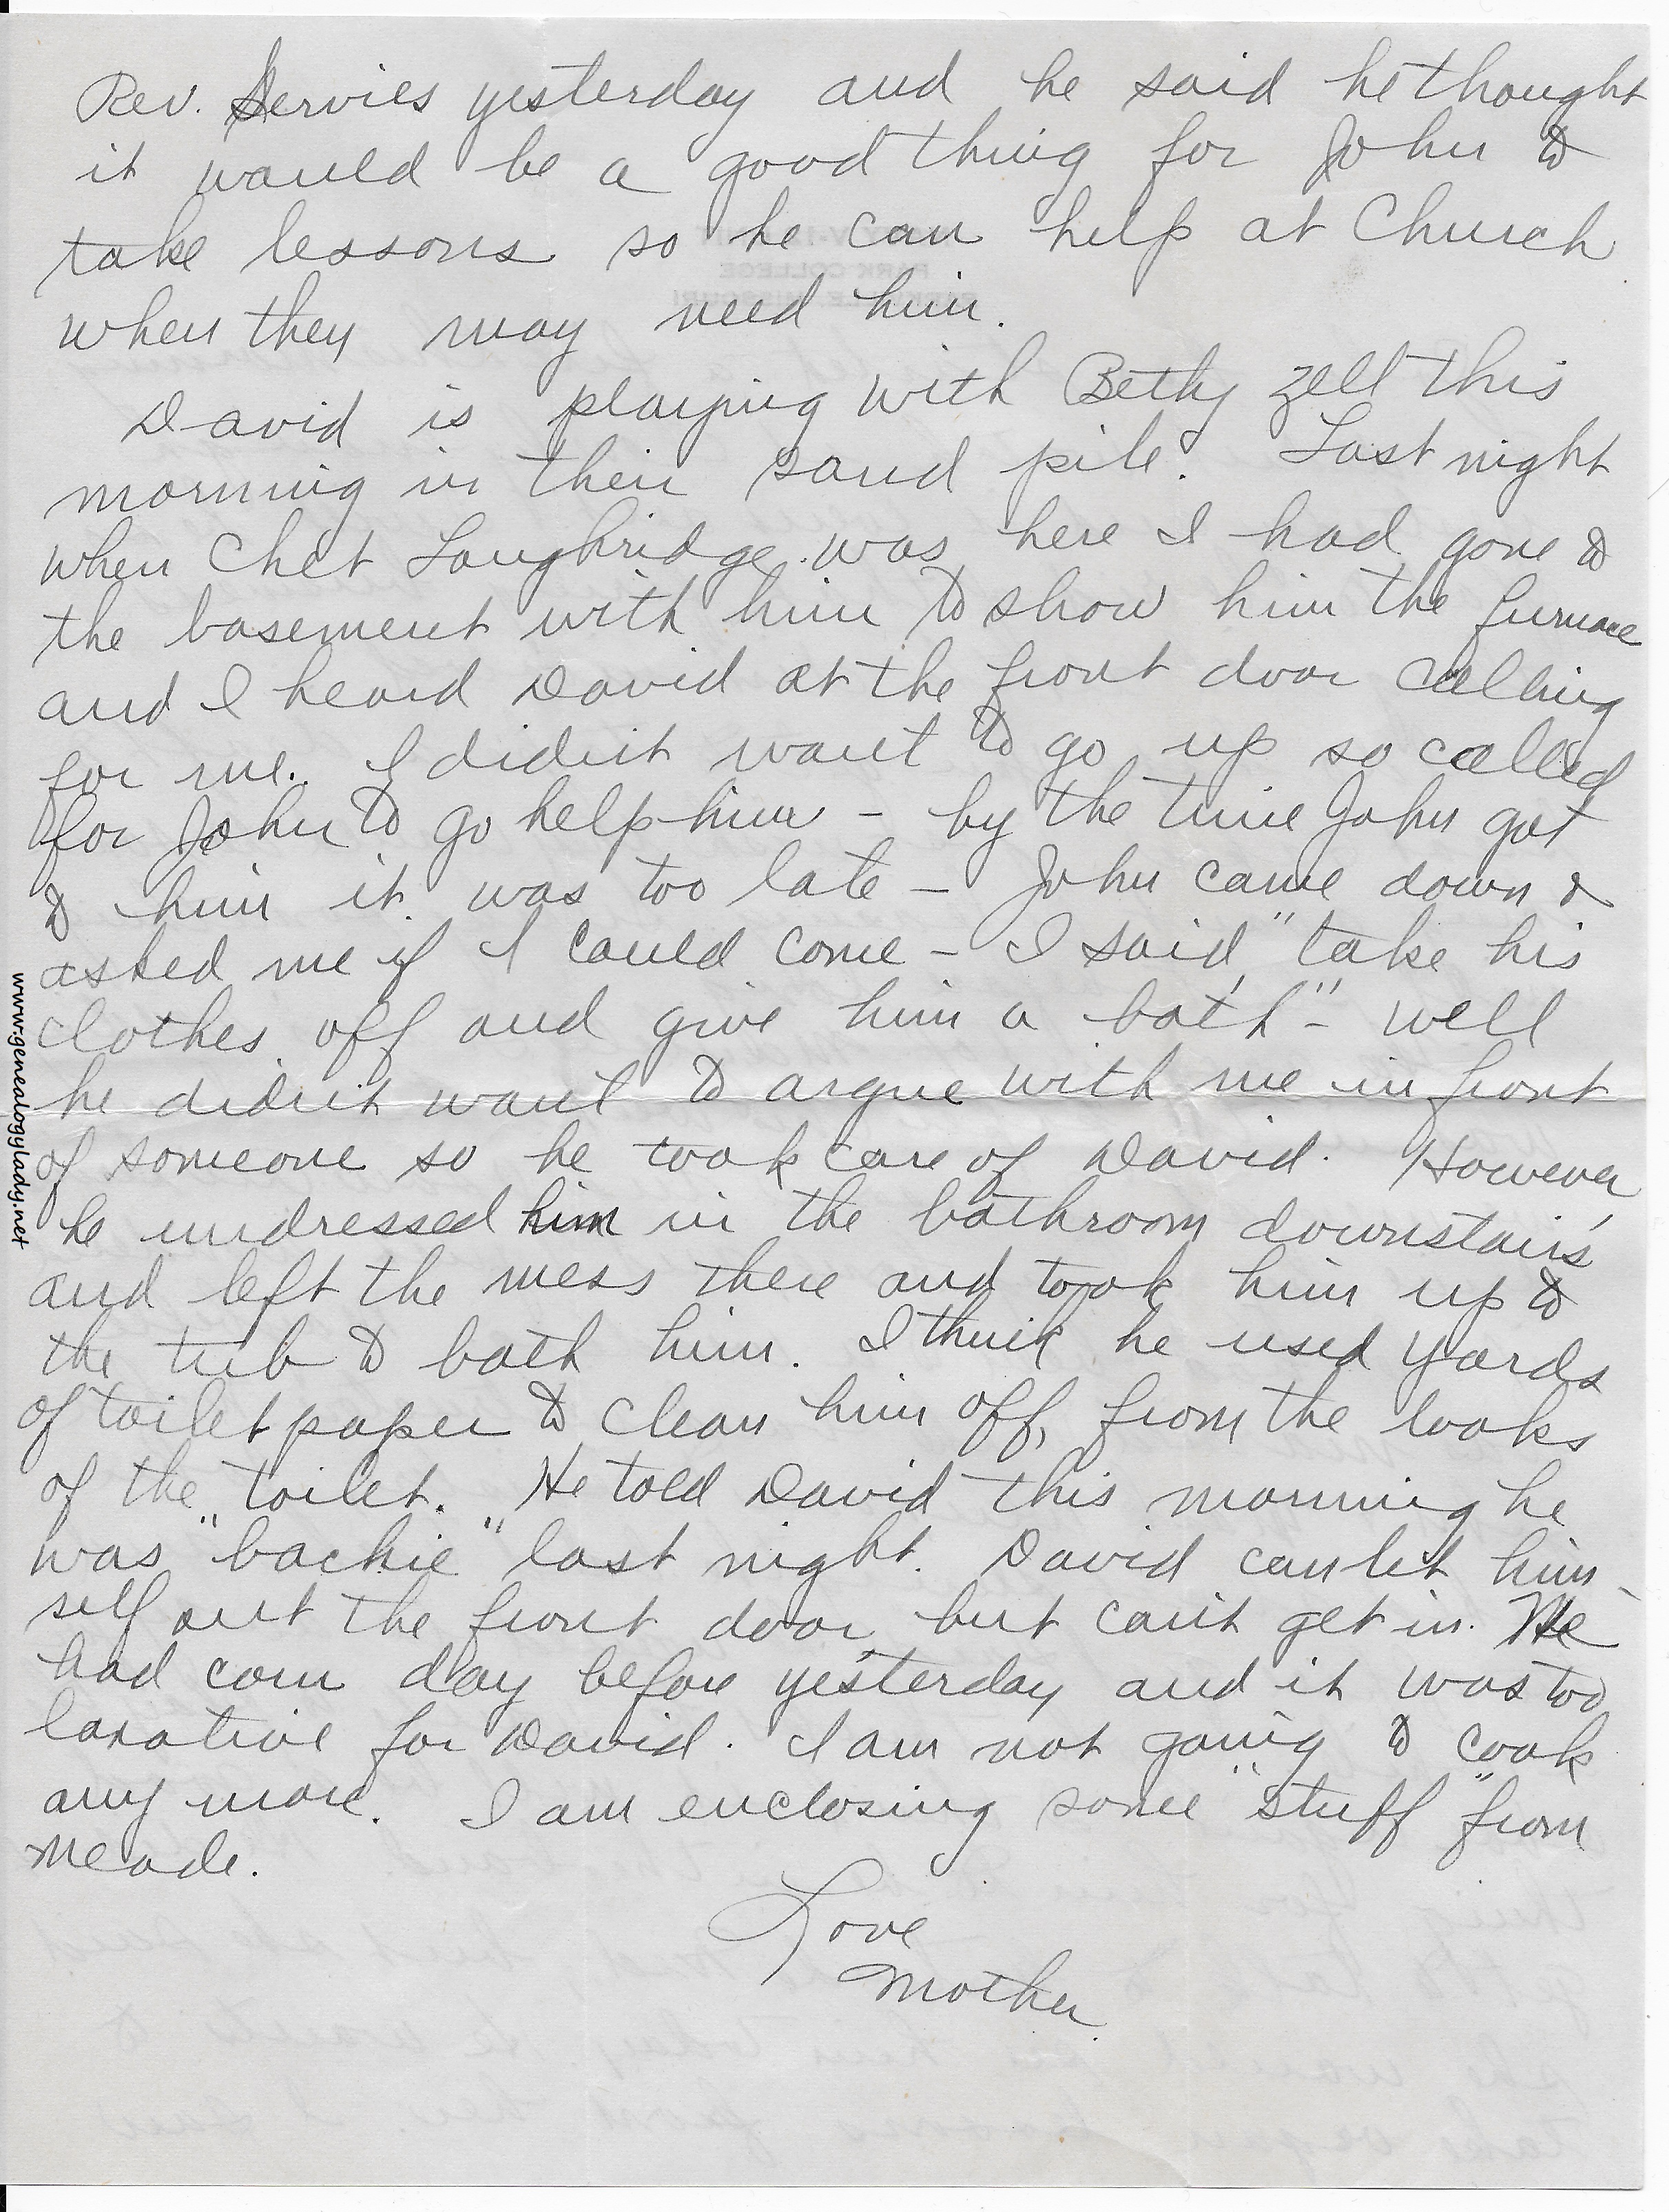 Rev. Servies yesterday and he said he thought
it would be a good thing for John to
take lessons so he can help at Church
when they may need him.
David is playing with Bethy Zell this
morning in their sand pile. Last night
when Chet Loughridge was here I had gone to
the basement with him to show him the furnace
and I heard David at the front door calling
for me. I didn't want to go up so called
for John to go help him – by the time John got
to him it was too late – John came down &
asked me if I could come – I said, "take his
clothes off and give him a bath" – well
he didn't want to argue with me in front
of someone so he took care of David. However
he undressed him in the bathroom downstairs
and left the mess there and took him up to
the tub to bath him. I think he used yards
of toilet paper to clean him off, from the looks
of the toilet. He told David this morning he
was "backie" last night. David can let him-
self out the front door but can't get in. We
had corn day before yesterday and it was too
laxative for David. I am not going to cook
any more. I am enclosing some "stuff" from
Meade.
Love
Mother.
www.genealogylady.net
PARK COLLEGE